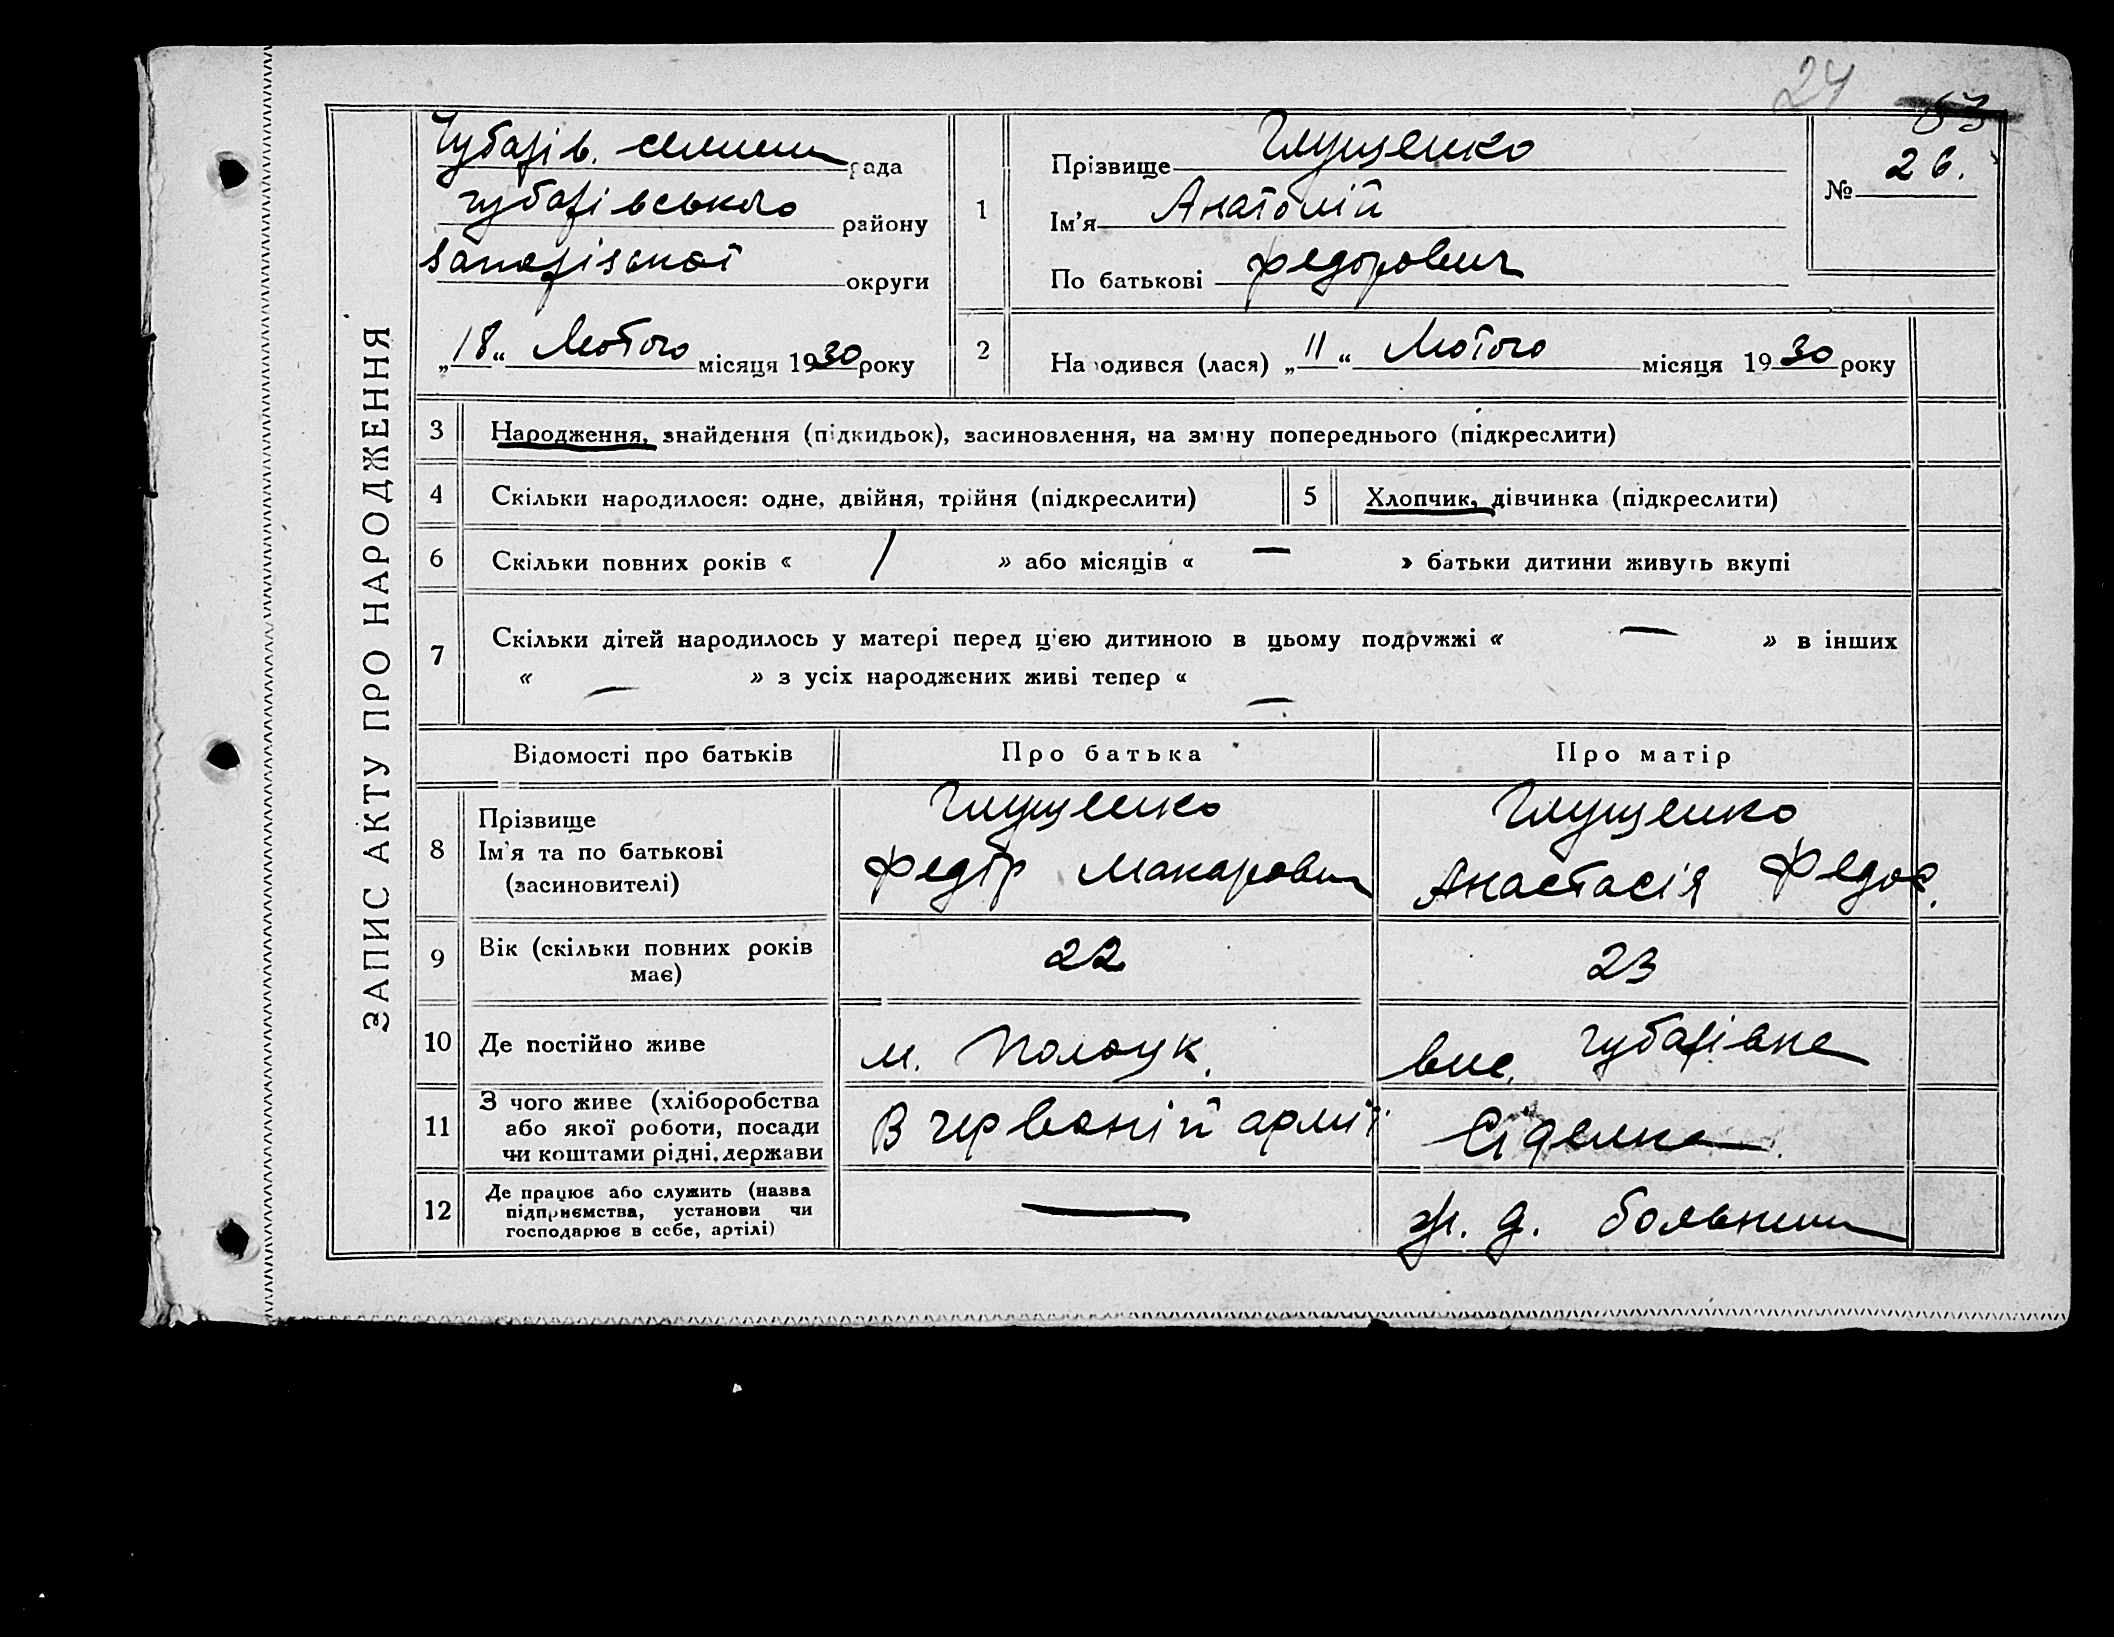 24
83
ЗАПИС АКТУ ПРО НАРОДЖЕННЯ
Чубарів. селищн рада
чубарівського району
Запорізької округи
„18“ Лютого місяця 1930 року
1
Прізвище Глущенко
Ім'я Анатолій
По батькові федорович
№ 26.
2
Народився (лася) „11“ Лютого місяця 1930 року
3 Народження, знайдення (підкидьок), засиновлення, на зміну попереднього (підкреслити)
4 Скільки народилося: одне, двійня, трійня (підкреслити) 5 Хлопчик, дівчинка (підкреслити)
6 Скільки повних років « / » або місяців « — » батьки дитини живуть вкупі
7 Скільки дітей народилось у матері перед ц'єю дитиною в цьому подружжі « — » в інших
« — » з усіх народжених живі тепер « —
Відомості про батьків Про батька Про матір
8 Прізвище
Ім'я та по батькові
(засиновителі)
Глущенко
Федір Макарович
Глущенко
Анастасія Федос.
9 Вік (скільки повних років
має)
22
23
10 Де постійно живе
м. Полоцк.
вис. Чубарівка
11 З чого живе (хліборобства
або якої роботи, посади
чи коштами рідні, держави
В червоній армії
Сіделка
12 Де працює або служить (назва
підприємства, установи чи
господарює в себе, артілі)
—
ж. д. больниці